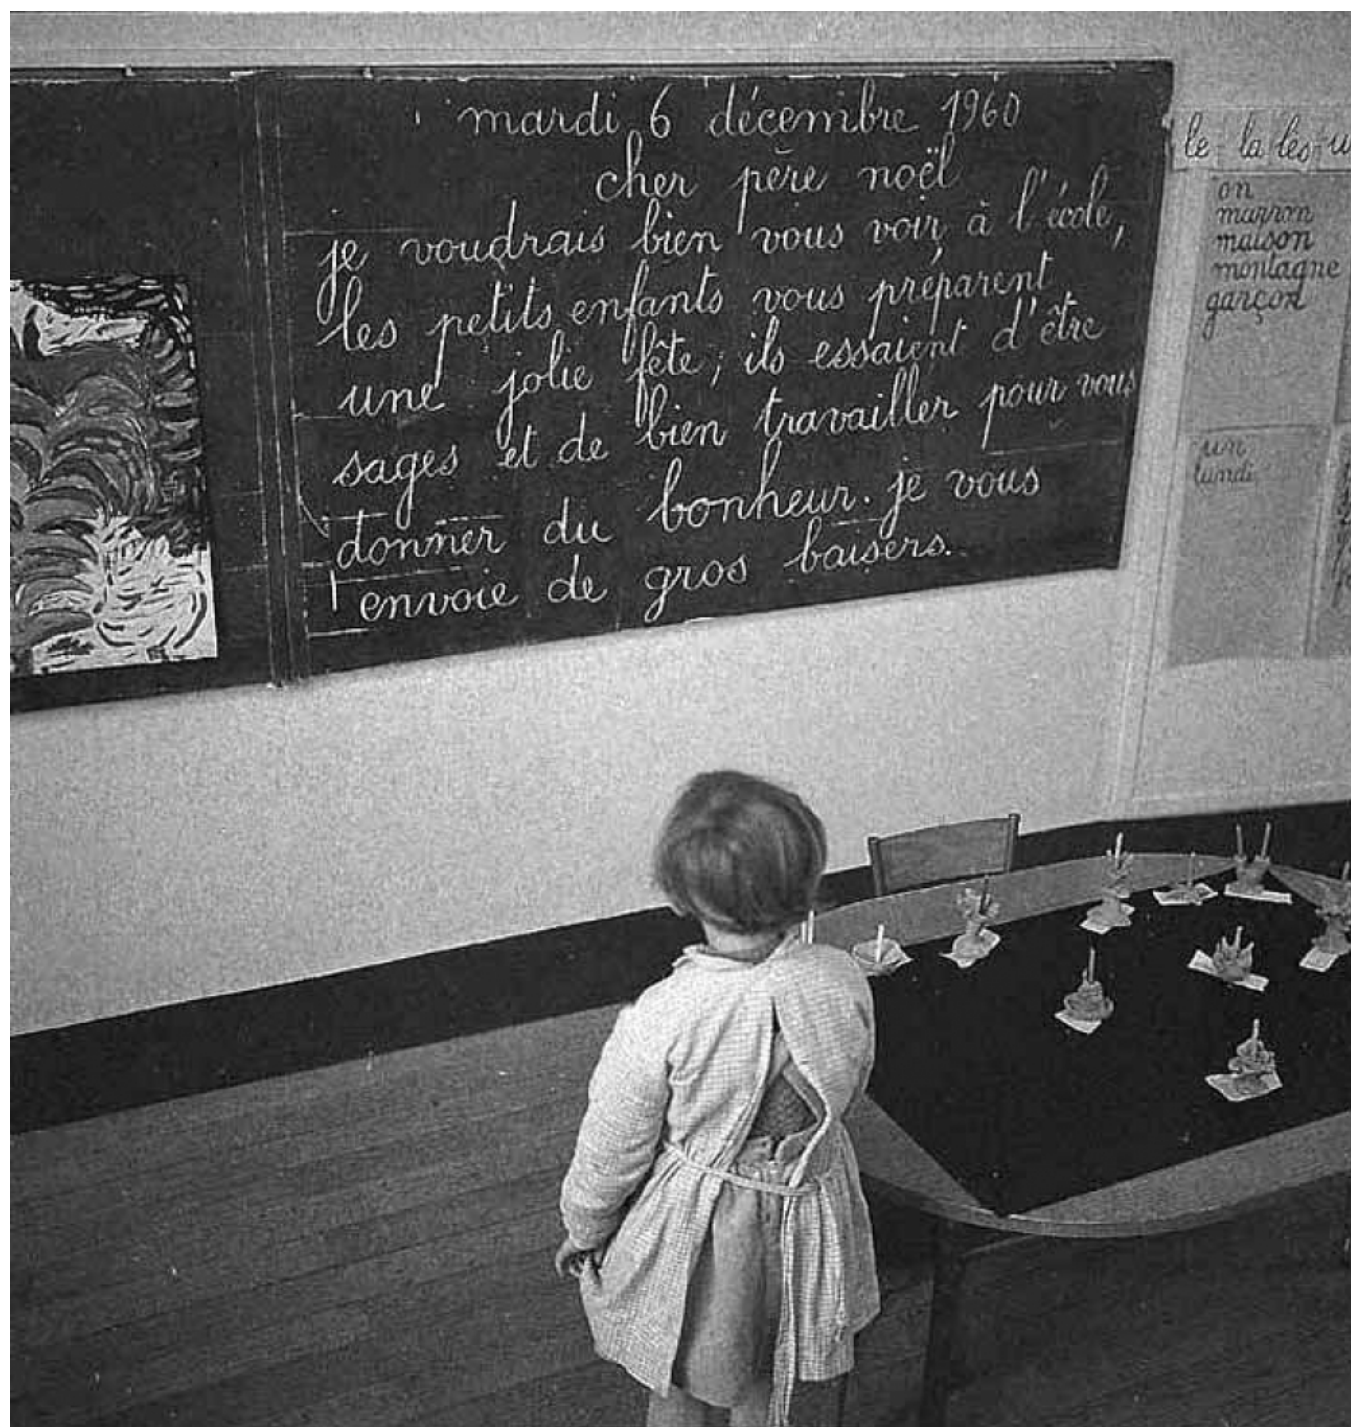 mardi 6 décembre 1960
cher père noël
je voudrais bien vous voir, à l'école,
les petits enfants vous préparent
une jolie fête; ils essaient d'être
sages et de bien travailler pour vous
donner du bonheur. je vous
envoie de gros baisers.
le la les
on
marron
maison
montagne
garçon
un
lundi